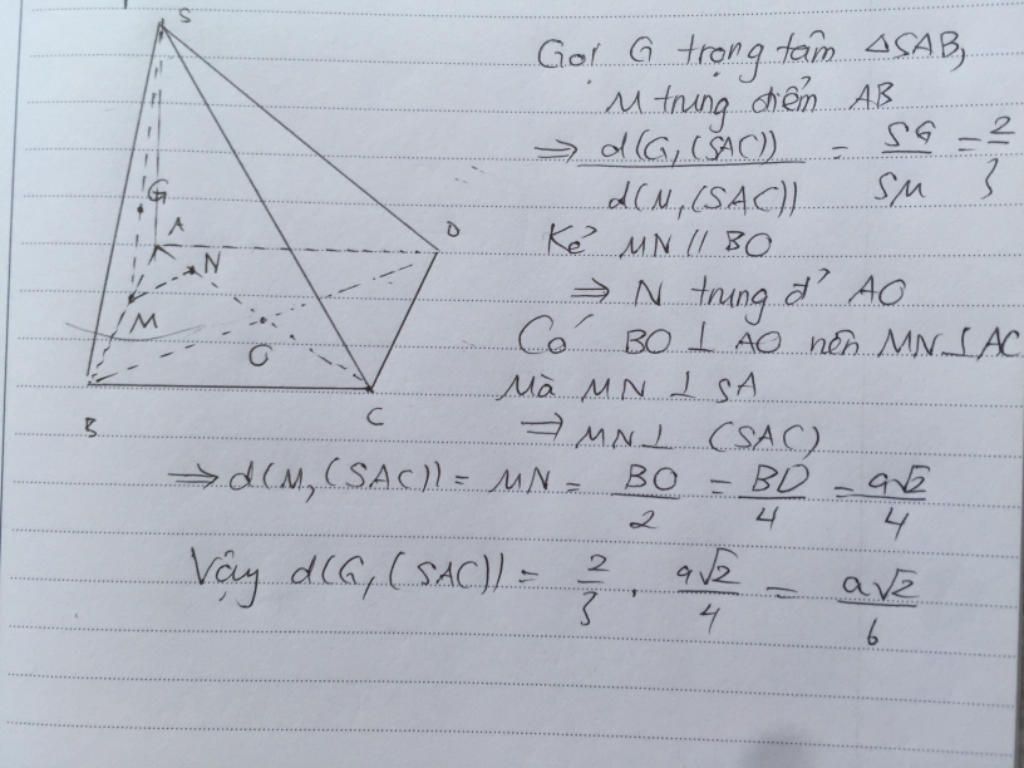 S
G
A
D
N
M
O
B
C
Gọi G trọng tâm ΔSAB,
M trung điểm AB
⇒ d(G,(SAC)) / d(M,(SAC)) = SG / SM = 2/3
Kẻ MN // BO
⇒ N trung đ' AO
Có BO ⊥ AO nên MN ⊥ AC
Mà MN ⊥ SA
⇒ MN ⊥ (SAC)
⇒ d(M,(SAC)) = MN = BO/2 = BD/4 = a√2/4
Vậy d(G,(SAC)) = 2/3 . a√2/4 = a√2/6